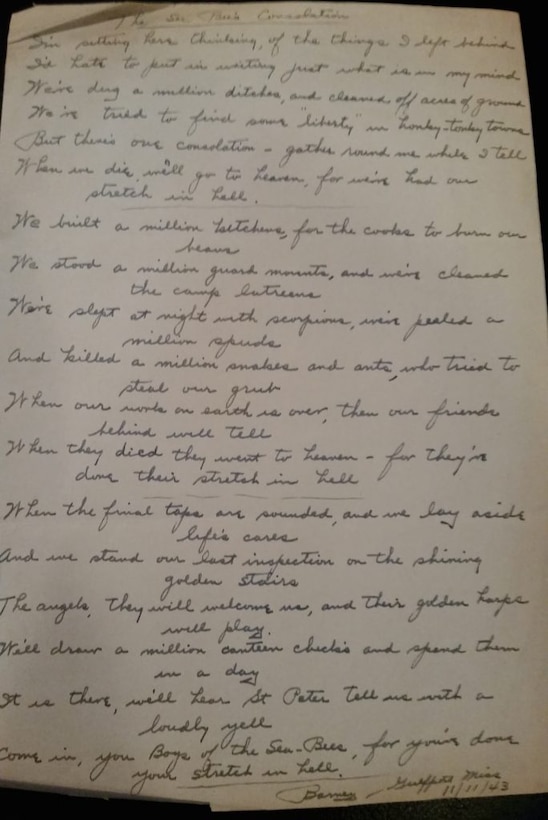 The Sea Bee's Consolation
I'm sitting here thinking, of the things I left behind
I'd hate to put in writing just what is in my mind
We've dug a million ditches, and cleaned off acres of ground
We've tried to find some "liberty" in honky-tonky towns
But there's one consolation - gather round me while I tell
When we die, we'll go to heaven, for we've had our
stretch in hell.
We built a million kitchens, for the cooks to burn our
beans
We stood a million guard mounts, and we've cleaned
the camp latreens
We've slept at night with scorpions, we've pealed a
million spuds
And killed a million snakes and ants, who tried to
steal our grub
When our work on earth is over, then our friends
behind will tell
When they died they went to heaven - for they've
done their stretch in hell
When the final taps are sounded, and we lay aside
life's cares
And we stand our last inspection on the shining
golden stairs
The angels, they will welcome us, and their golden harps
will play.
We'll draw a million canteen checks and spend them
in a day
It is there, we'll hear St Peter tell us with a
loudly yell
Come in, you Boys of the Sea-Bees, for you've done
your stretch in hell.
Barney Gulfport Miss
11/11/43